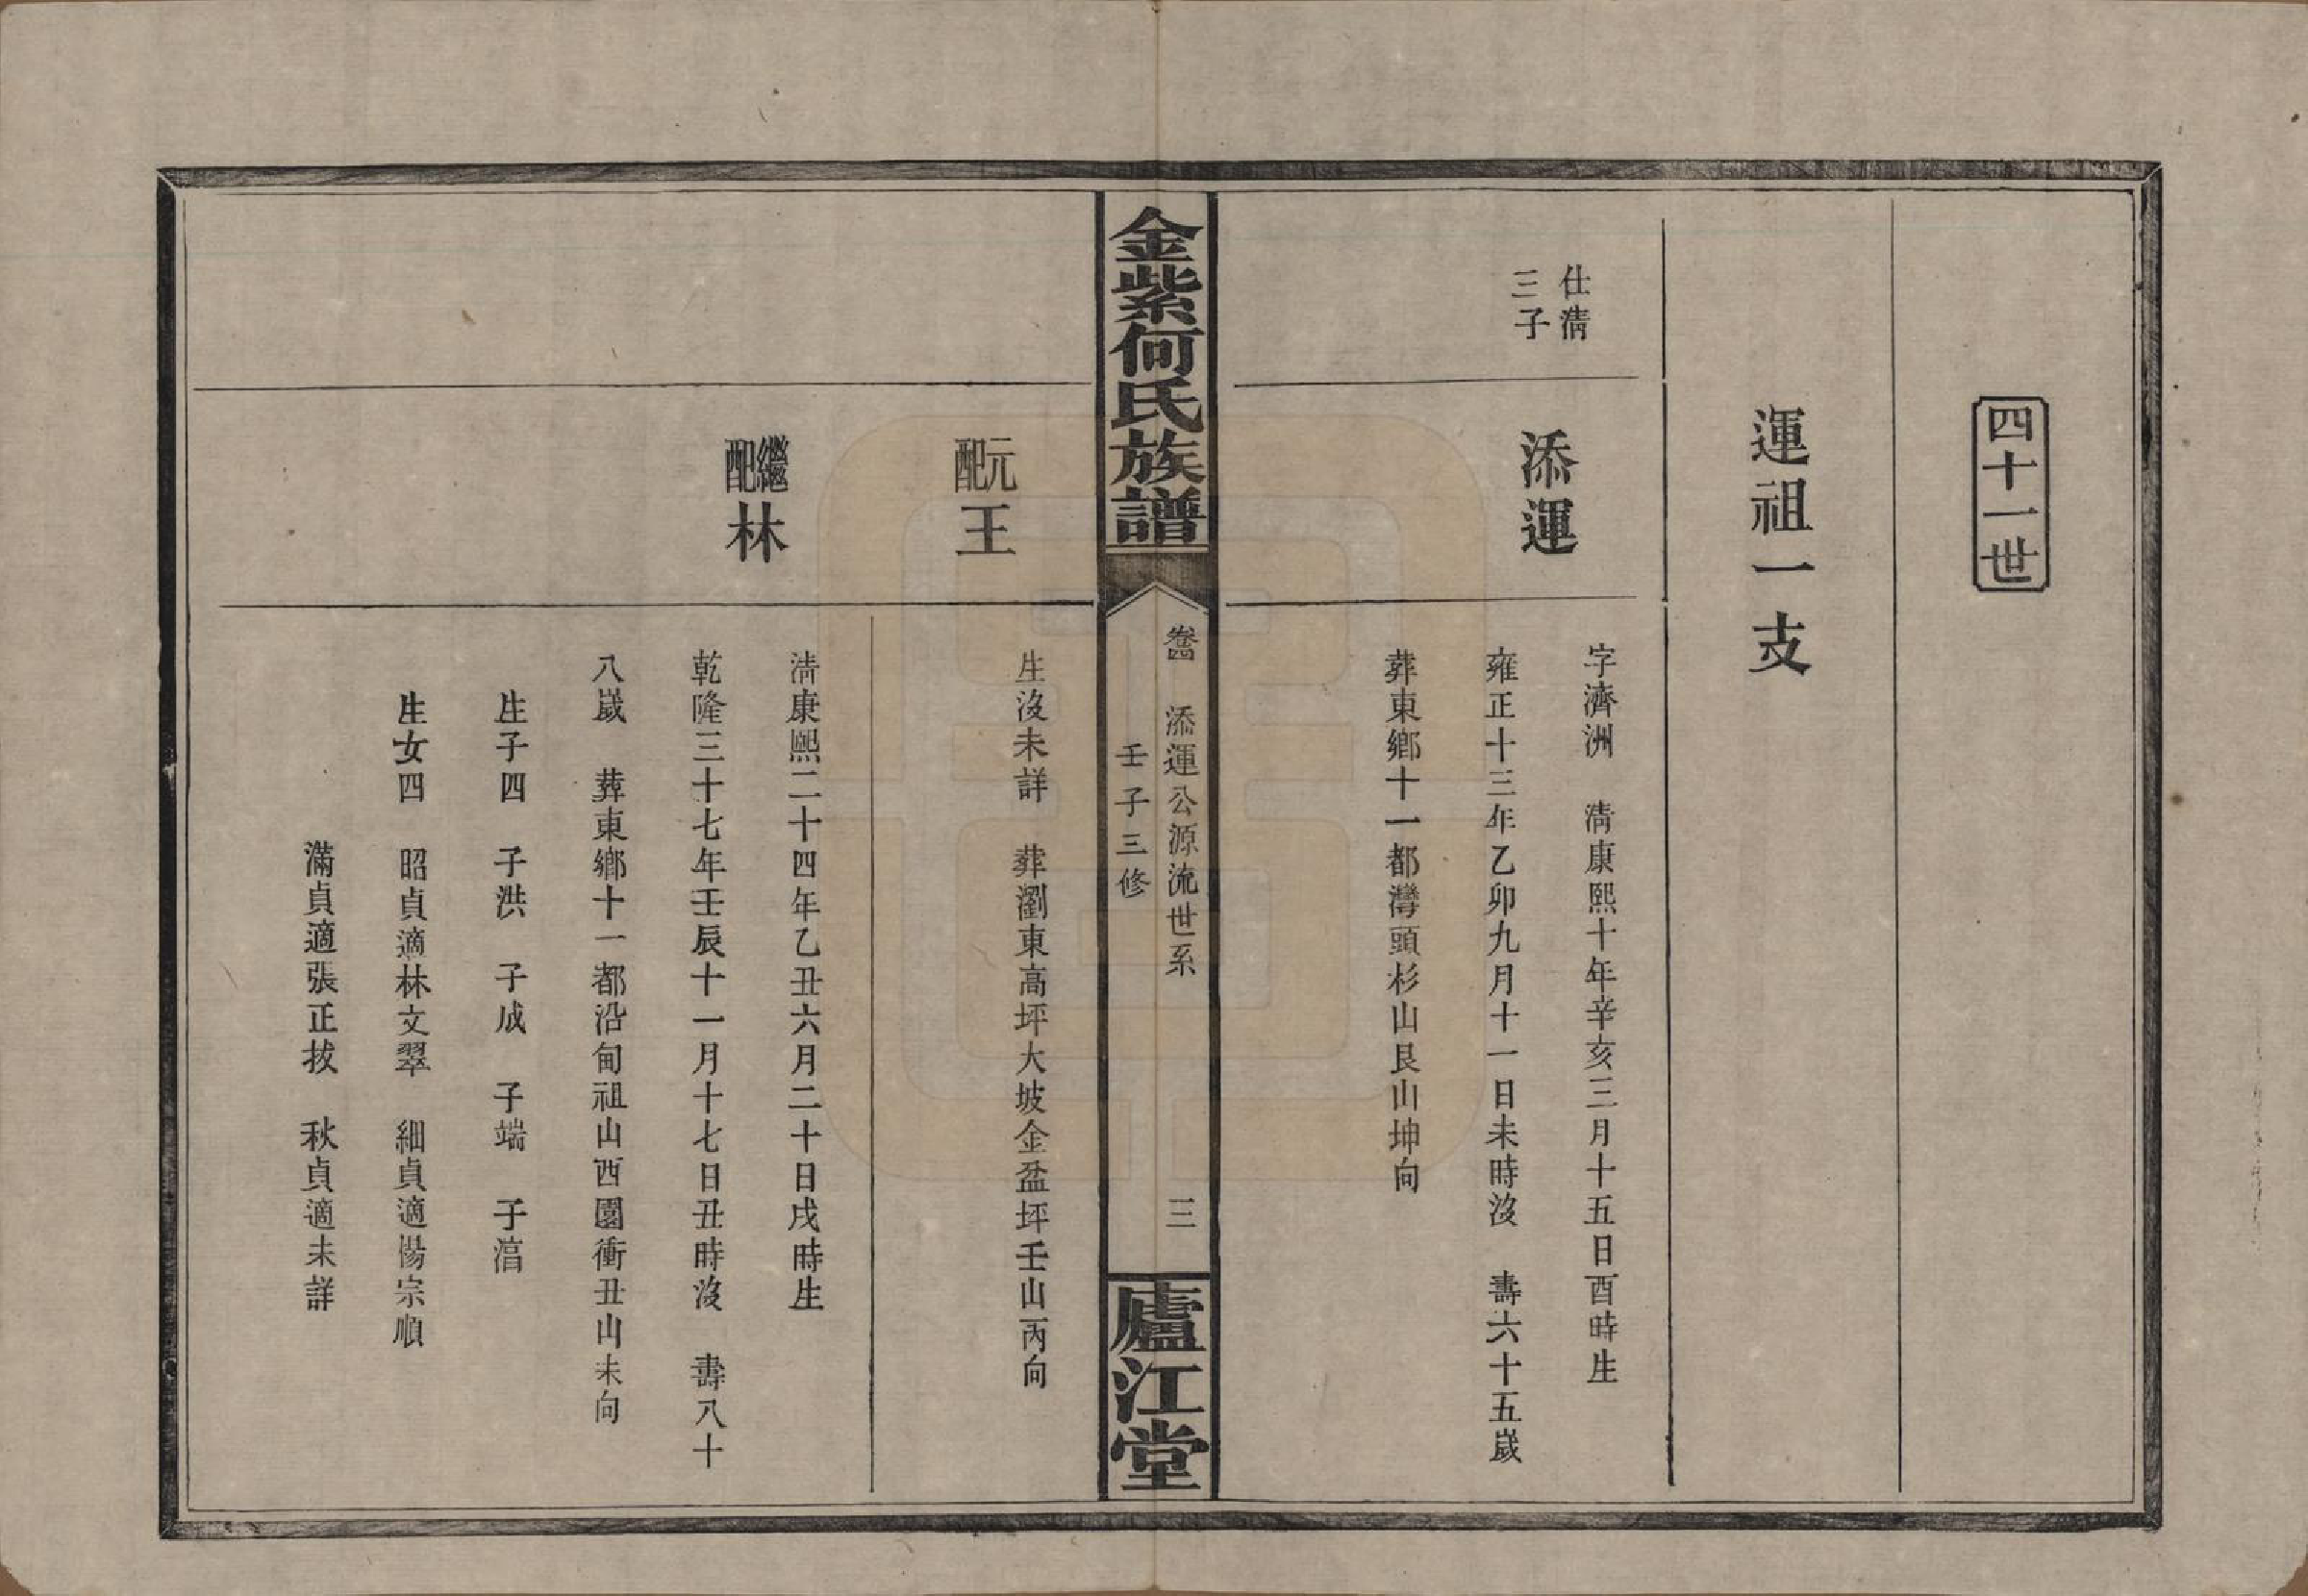 四十一世
運祖一支
仕清
三子
添運
字濟洲　清康熙十年辛亥三月十五日酉時生
雍正十三年乙卯九月十一日未時沒　壽六十五歲
葬東鄉十一都灣頭杉山艮山坤向
金紫何氏族譜
卷四　添運公源流世系　三
壬子三修
廬江堂
元配王
生沒未詳　葬瀏東高坪大坡金盆坪壬山丙向
繼配林
清康熙二十四年乙丑六月二十日戌時生
乾隆三十七年壬辰十一月十七日丑時沒　壽八十
八歲　葬東鄉十一都沿甸祖山西園衝丑山未向
生子四　子洪　子成　子端　子涫
生女四　昭貞適林文翠　細貞適楊宗順
滿貞適張正拔　秋貞適未詳